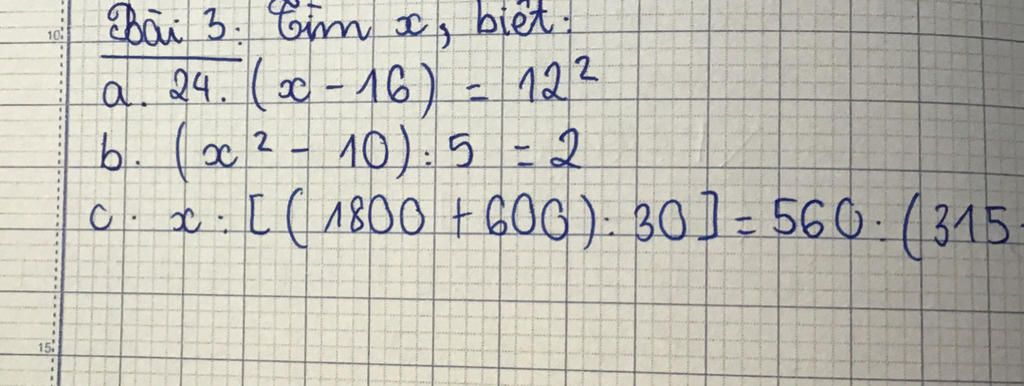 10
Bài 3: Tìm x, biết:
a. 24. (x - 16) = 12²
b. (x² - 10) : 5 = 2
c. x : [(1800 + 600) : 30] = 560 : (315
15